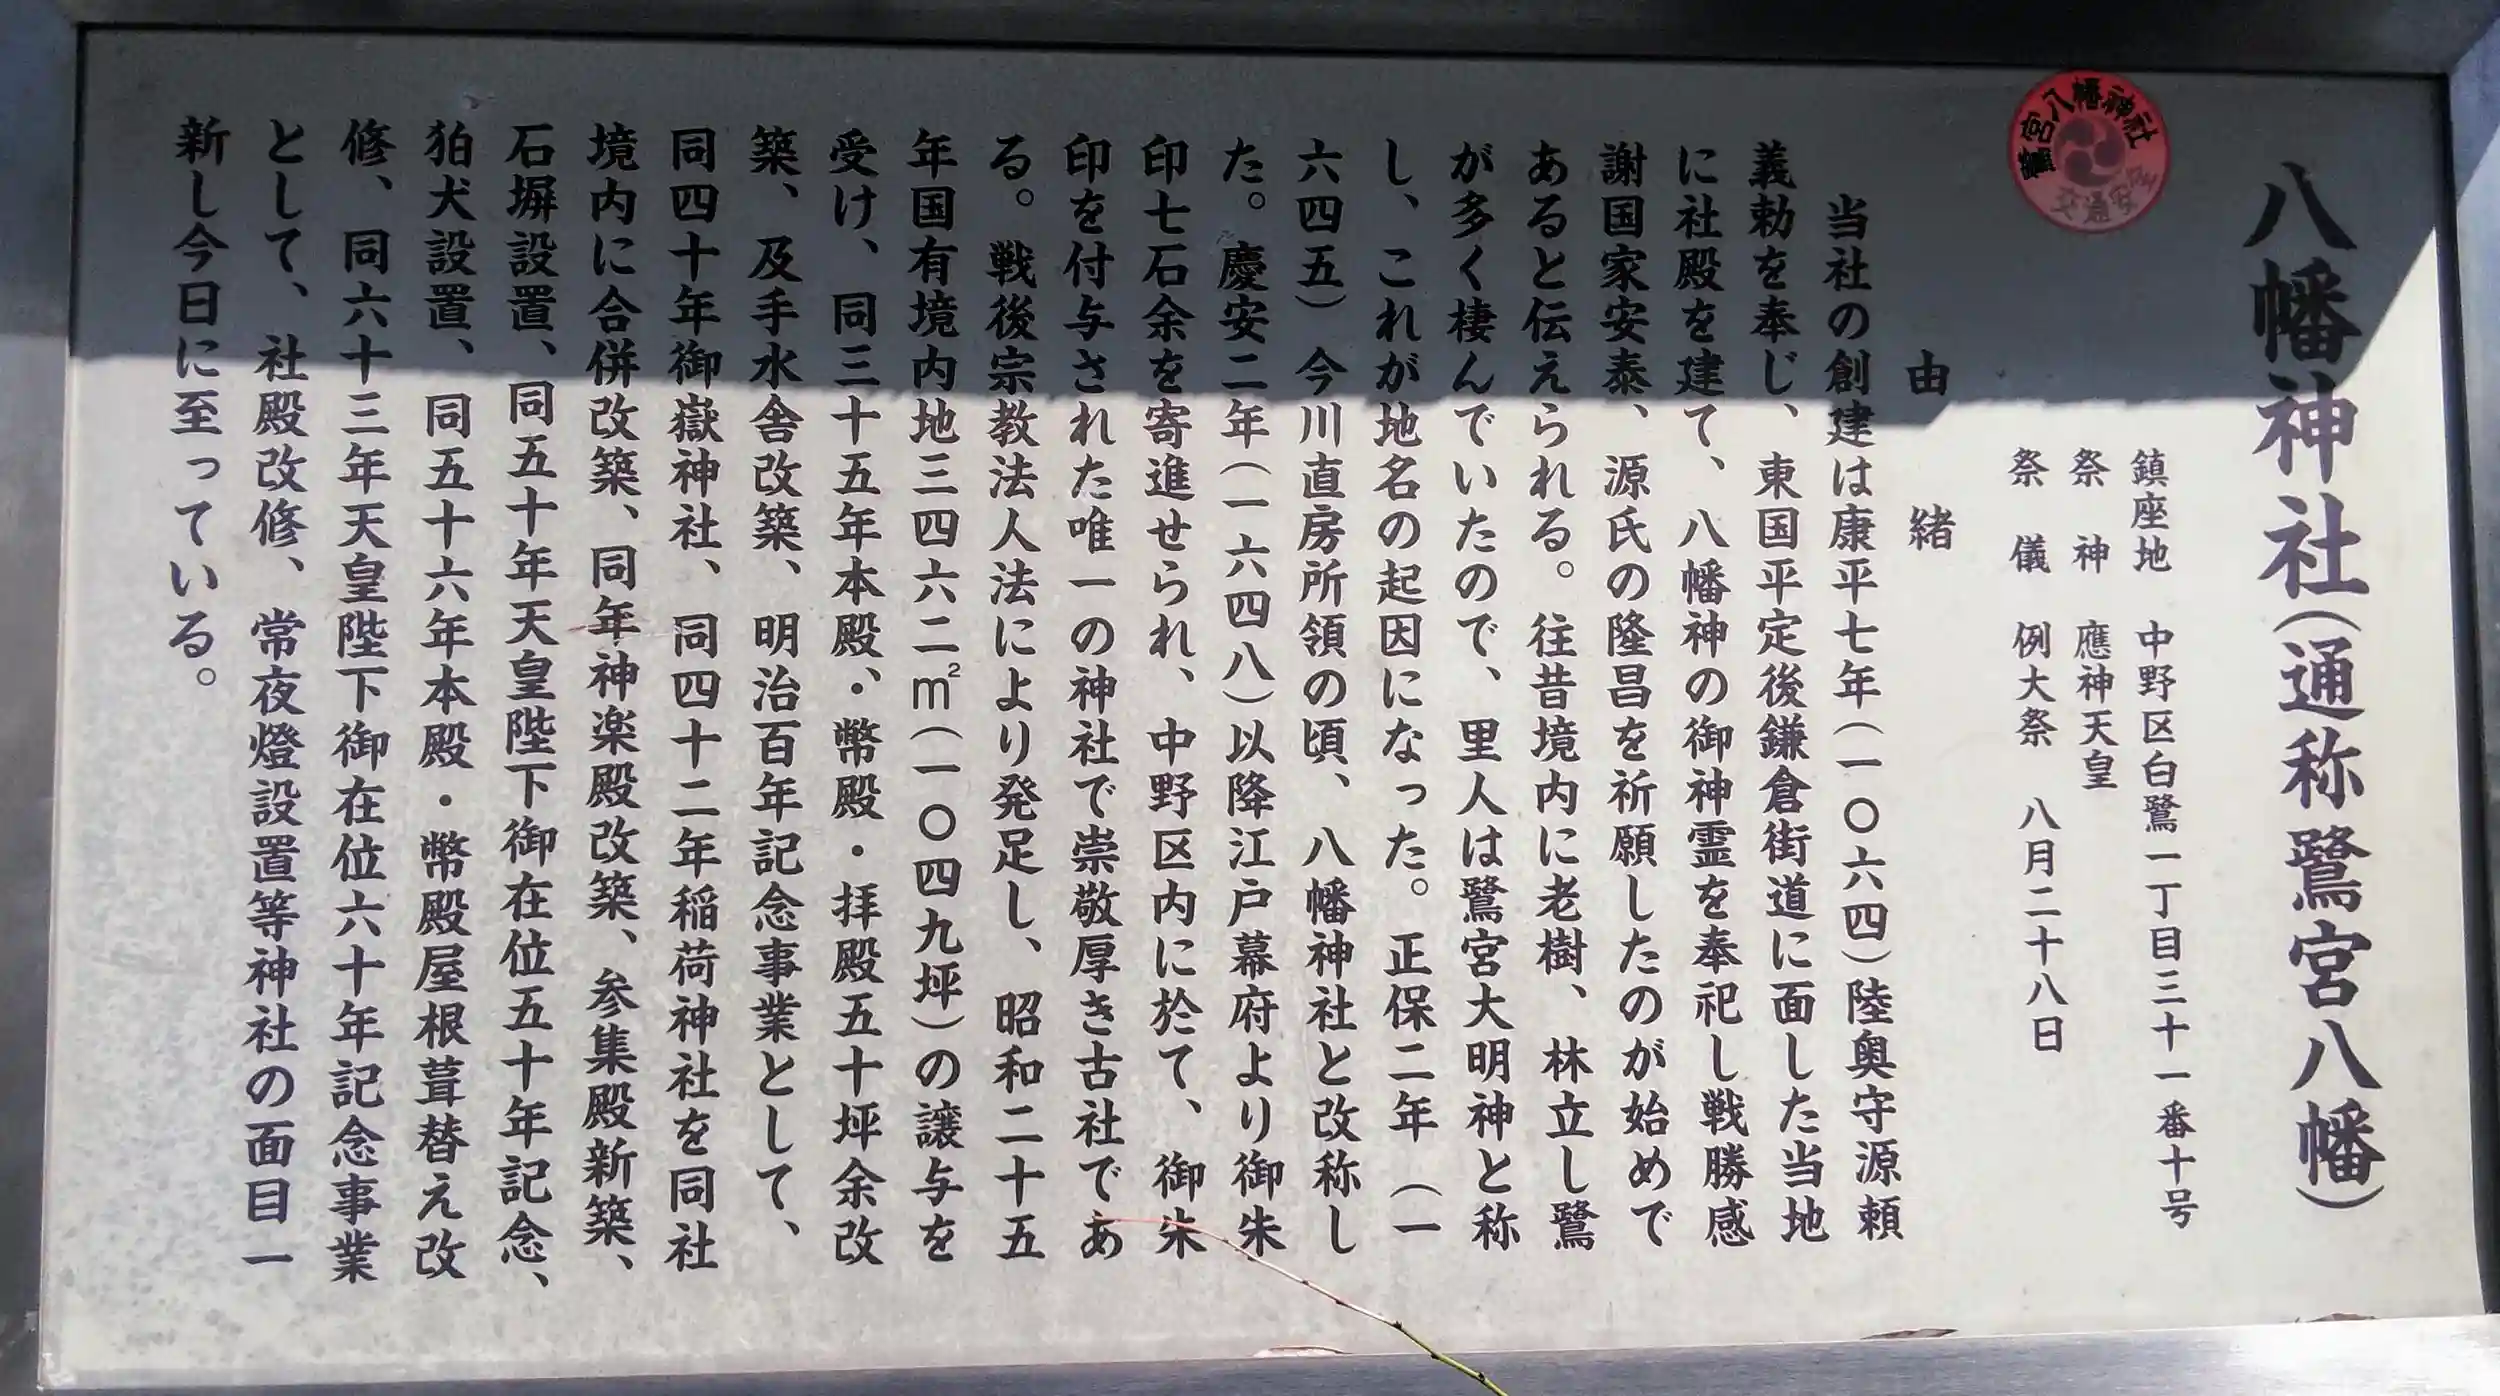 八幡神社（通称鷺宮八幡）
鎮座地　中野区白鷺一丁目三十一番十号
祭　神　應神天皇
祭　儀　例大祭　八月二十八日
鷺宮八幡神社
交通安
由　緒
当社の創建は康平七年（一〇六四）陸奥守源頼
義勅を奉じ、東国平定後鎌倉街道に面した当地
に社殿を建て、八幡神の御神霊を奉祀し戦勝感
謝国家安泰、源氏の隆昌を祈願したのが始めで
あると伝えられる。往昔境内に老樹、林立し鷺
が多く棲んでいたので、里人は鷺宮大明神と称
し、これが地名の起因になった。正保二年（一
六四五）今川直房所領の頃、八幡神社と改称し
た。慶安二年（一六四八）以降江戸幕府より御朱
印七石余を寄進せられ、中野区内に於て、御朱
印を付与された唯一の神社で崇敬厚き古社であ
る。戦後宗教法人法により発足し、昭和二十五
年国有境内地三四六二㎡（一〇四九坪）の譲与を
受け、同三十五年本殿、・幣殿・拝殿五十坪余改
築、及手水舎改築、明治百年記念事業として、
同四十年御嶽神社、同四十二年稲荷神社を同社
境内に合併改築、同年神楽殿改築、参集殿新築、
石塀設置、同五十年天皇陛下御在位五十年記念、
狛犬設置、同五十六年本殿・幣殿屋根葺替え改
修、同六十三年天皇陛下御在位六十年記念事業
として、社殿改修、常夜燈設置等神社の面目一
新し今日に至っている。